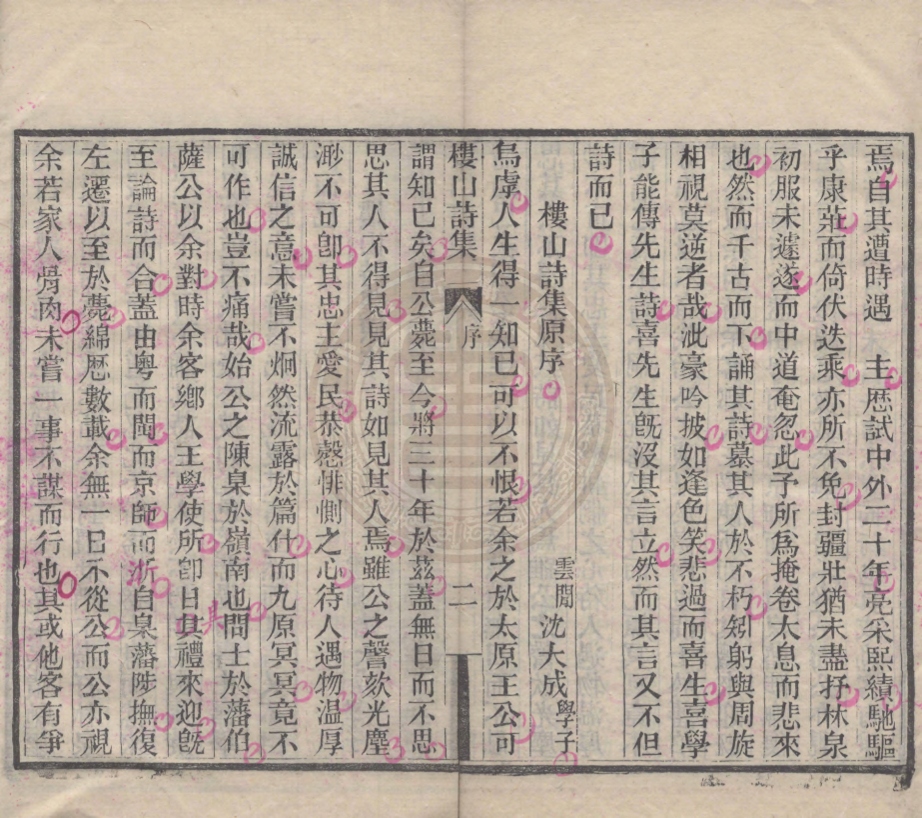 焉自其遭時遇　主歴試中外二十年亮采熙績馳驅
乎康莊而倚伏迭乘亦所不免封疆壯猶未盡抒林泉
初服未遽遂而中道奄忽此予所爲掩卷太息而悲來
也然而千古而下誦其詩慕其人於不朽矧躬與周旋
相視莫逆者哉泚豪吟披如逢色笑悲過而喜生喜學
子能傳先生詩喜先生旣沒其言立然而其言又不但
詩而已
樓山詩集原序
雲間沈大成學子
烏虖人生得一知已可以不恨若余之於太原王公可
樓山詩集　序　二
謂知已矣自公薨至今將三十年於茲蓋無日而不思
思其人不得見見其詩如見其人焉雖公之謦欬光塵
渺不可卽其忠主愛民恭慤悱惻之心待人遇物温厚
誠信之意未嘗不烱然流露於篇什而九原冥冥竟不
可作也豈不痛哉始公之陳臬於嶺南也問士於藩伯
薩公以余對時余客鄉人王學使所卽日具禮來迎旣
至論詩而合蓋由粤而閩而京師而浙自臬藩陟撫復
左遷以至於薨綿歴數載余無一日不從公而公亦視
余若家人骨肉未嘗一事不謀而行也其或他客有爭